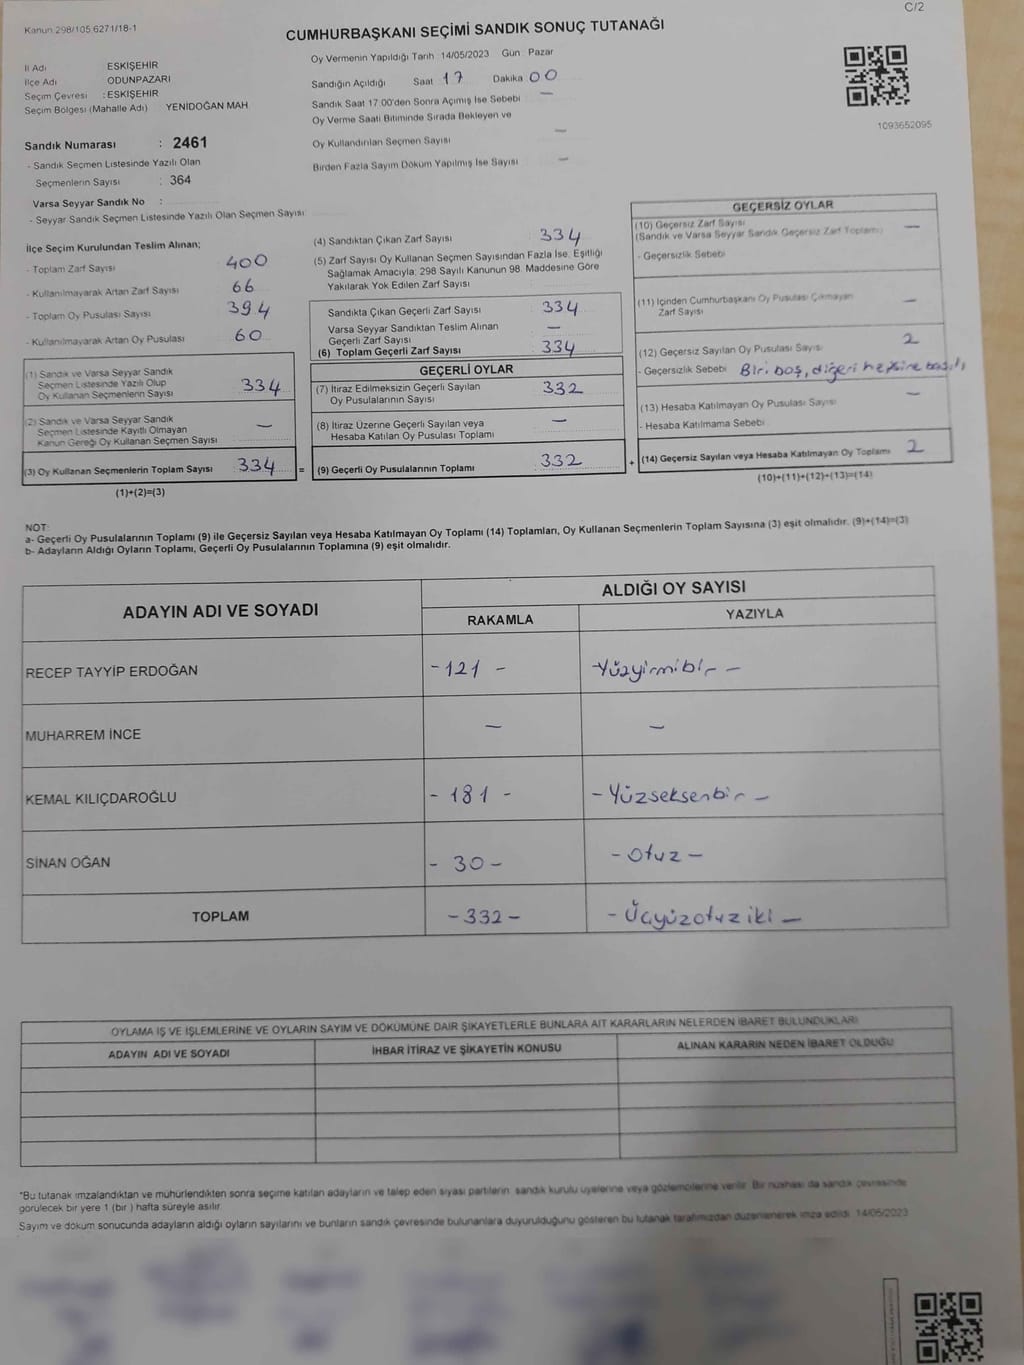 C/2
Kanun 298/105,6271/18-1
CUMHURBAŞKANI SEÇİMİ SANDIK SONUÇ TUTANAĞI
İl Adı ESKİŞEHİR
İlçe Adı ODUNPAZARI
Seçim Çevresi : ESKİŞEHİR
Seçim Bölgesi (Mahalle Adı) YENİDOĞAN MAH
Sandık Numarası : 2461
- Sandık Seçmen Listesinde Yazılı Olan
Seçmenlerin Sayısı : 364
Varsa Seyyar Sandık No :
- Seyyar Sandık Seçmen Listesinde Yazılı Olan Seçmen Sayısı
Oy Vermenin Yapıldığı Tarih 14/05/2023 Gün Pazar
Sandığın Açıldığı Saat 17 Dakika 00
Sandık Saat 17:00'den Sonra Açımış İse Sebebi —
Oy Verme Saati Bitiminde Sırada Bekleyen ve
Oy Kullandırılan Seçmen Sayısı —
Birden Fazla Sayım Döküm Yapılmış İse Sayısı —
1093652095
İlçe Seçim Kurulundan Teslim Alınan;
- Toplam Zarf Sayısı 400
- Kullanılmayarak Artan Zarf Sayısı 66
- Toplam Oy Pusulası Sayısı 394
- Kullanılmayarak Artan Oy Pusulası 60
(1) Sandık ve Varsa Seyyar Sandık
Seçmen Listesinde Yazılı Olup
Oy Kullanan Seçmenlerin Sayısı 334
(2) Sandık ve Varsa Seyyar Sandık
Seçmen Listesinde Kayıtlı Olmayan
Kanun Gereği Oy Kullanan Seçmen Sayısı —
(3) Oy Kullanan Seçmenlerin Toplam Sayısı 334 =
(1)+(2)=(3)
(4) Sandıktan Çıkan Zarf Sayısı 334
(5) Zarf Sayısı Oy Kullanan Seçmen Sayısından Fazla İse, Eşitliği
Sağlamak Amacıyla; 298 Sayılı Kanunun 98. Maddesine Göre
Yakılarak Yok Edilen Zarf Sayısı
Sandıkta Çıkan Geçerli Zarf Sayısı 334
Varsa Seyyar Sandıktan Teslim Alınan
Geçerli Zarf Sayısı —
(6) Toplam Geçerli Zarf Sayısı 334
GEÇERLİ OYLAR
(7) İtiraz Edilmeksizin Geçerli Sayılan
Oy Pusulalarının Sayısı 332
(8) İtiraz Üzerine Geçerli Sayılan veya
Hesaba Katılan Oy Pusulası Toplamı —
(9) Geçerli Oy Pusulalarının Toplamı 332 +
GEÇERSİZ OYLAR
(10) Geçersiz Zarf Sayısı —
(Sandık ve Varsa Seyyar Sandık Geçersiz Zarf Toplamı)
- Geçersizlik Sebebi
(11) İçinden Cumhurbaşkanı Oy Pusulası Çıkmayan
Zarf Sayısı —
(12) Geçersiz Sayılan Oy Pusulası Sayısı 2
- Geçersizlik Sebebi Biri boş, diğeri hepsine basılı
(13) Hesaba Katılmayan Oy Pusulası Sayısı —
- Hesaba Katılmama Sebebi
(14) Geçersiz Sayılan veya Hesaba Katılmayan Oy Toplamı 2
(10)+(11)+(12)+(13)=(14)
NOT:
a- Geçerli Oy Pusulalarının Toplamı (9) ile Geçersiz Sayılan veya Hesaba Katılmayan Oy Toplamı (14) Toplamları, Oy Kullanan Seçmenlerin Toplam Sayısına (3) eşit olmalıdır. (9)+(14)=(3)
b- Adayların Aldığı Oyların Toplamı, Geçerli Oy Pusulalarının Toplamına (9) eşit olmalıdır.
ADAYIN ADI VE SOYADI ALDIĞI OY SAYISI
RAKAMLA YAZIYLA
RECEP TAYYİP ERDOĞAN -121 - -Yüzyirmibir -
MUHARREM İNCE — —
KEMAL KILIÇDAROĞLU - 181 - -Yüzseksenbir -
SİNAN OĞAN - 30 - - otuz -
TOPLAM -332 - - Üçyüzotuziki -
OYLAMA İŞ VE İŞLEMLERİNE VE OYLARIN SAYIM VE DÖKÜMÜNE DAİR ŞİKAYETLERLE BUNLARA AİT KARARLARIN NELERDEN İBARET BULUNDUKLARI
ADAYIN ADI VE SOYADI İHBAR İTİRAZ VE ŞİKAYETİN KONUSU ALINAN KARARIN NEDEN İBARET OLDUĞU
*Bu tutanak imzalandıktan ve mühürlendikten sonra seçime katılan adayların ve talep eden siyasi partilerin sandık kurulu üyelerine veya gözlemcilerine verilir. Bir nüshası da sandık çevresinde
görülecek bir yere 1 (bir ) hafta süreyle asılır.
Sayım ve döküm sonucunda adayların aldığı oyların sayılarını ve bunların sandık çevresinde bulunanlara duyurulduğunu gösteren bu tutanak tarafımızdan düzenlenerek imza edildi. 14/05/2023